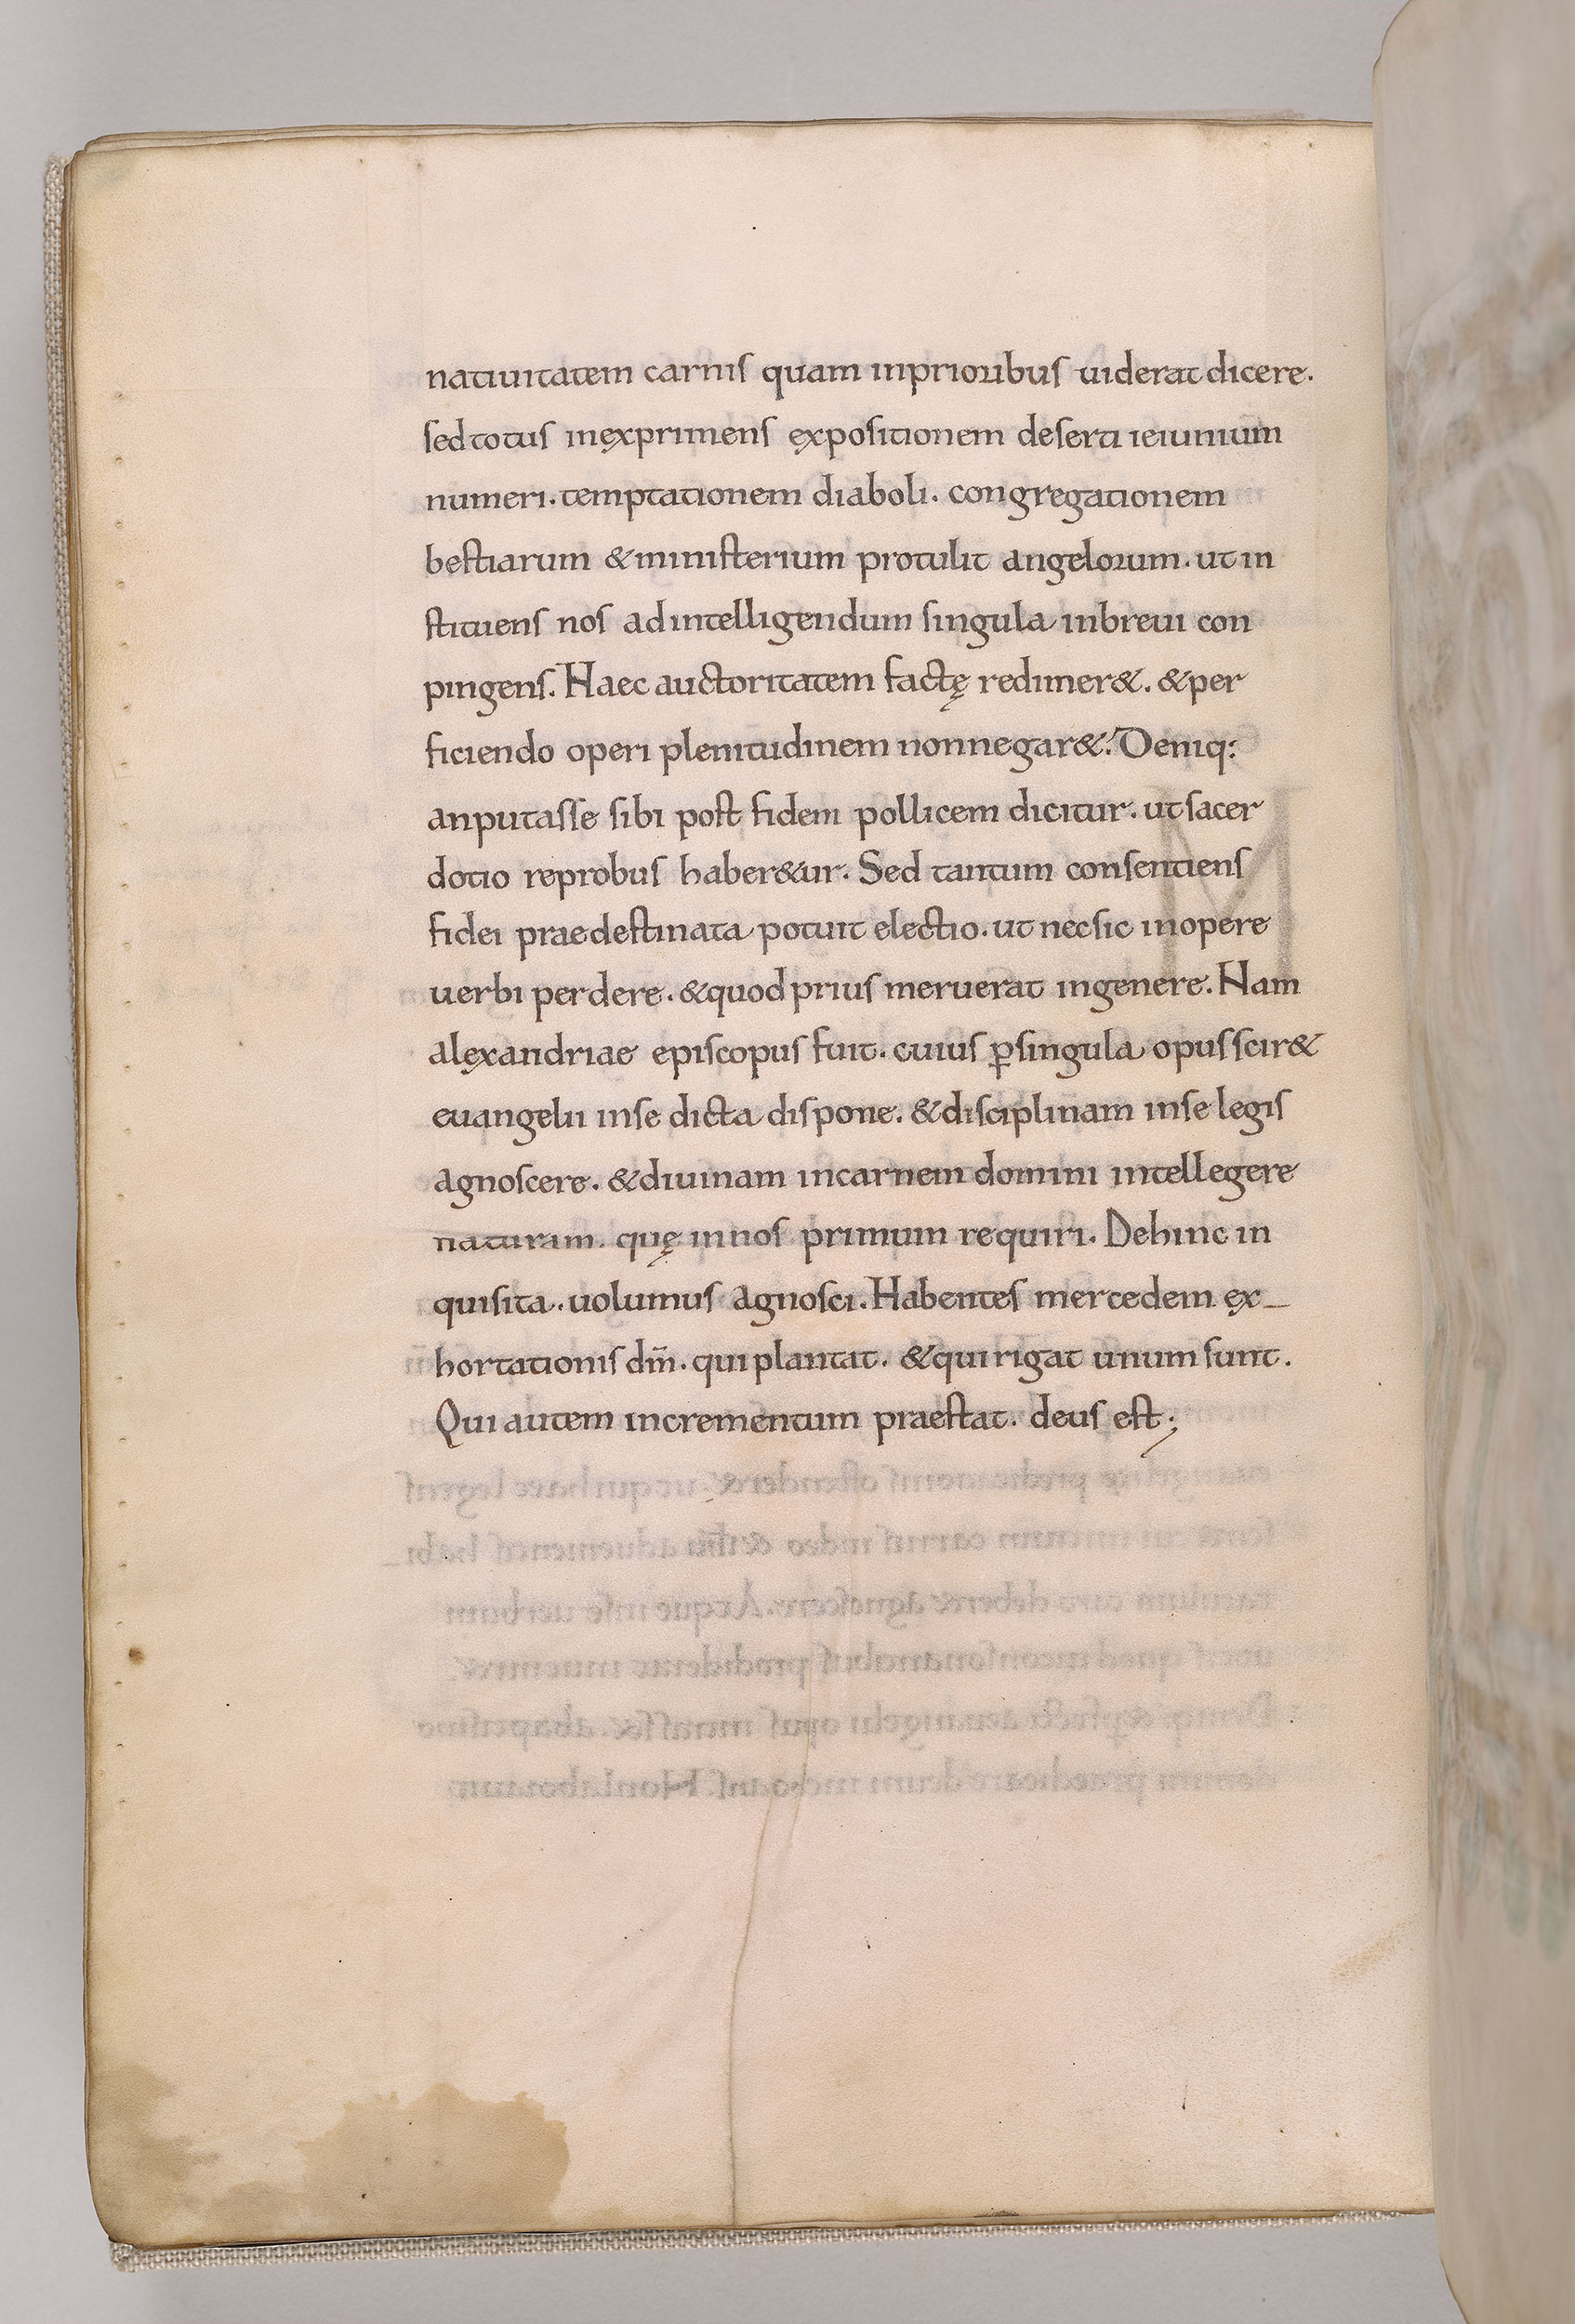 natiuitatem carnis quam inprioribus uiderat dicere.
sed totus inexprimens expositionem deserti ieiunium
numeri. temptationem diaboli. congregationem
bestiarum & ministerium protulit angelorum. ut in
stituens nos ad intelligendum singula inbreui con
pingens. Haec auctoritatem factę redimer&. & per
ficiendo operi plenitudinem nonnegar&. Deniq:
anputasse sibi post fidem pollicem dicitur. ut sacer
dotio reprobus haber&ur. Sed tantum consentiens
fidei praedestinata potuit electio. ut nec sic inopere
uerbi perdere. & quod prius meruerat ingenere. Nam
alęxandriae episcopus fuit. cuius ꝑ singula opus scir&
euangelii inse dicta dispone. & disciplinam inse legis
agnoscere. & diuinam incarnem domini intellegere
naturam. quę innos primum requiri. Dehinc in
quisita. uolumus agnosci. Habentes mercedem ęx_
hortationis dm̄. qui plantat. & qui rigat unum sunt.
Qui autem incrementum praestat. deus est;